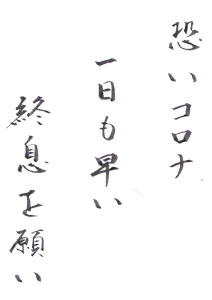 恐いコロナ
一日も早い
終息を願い